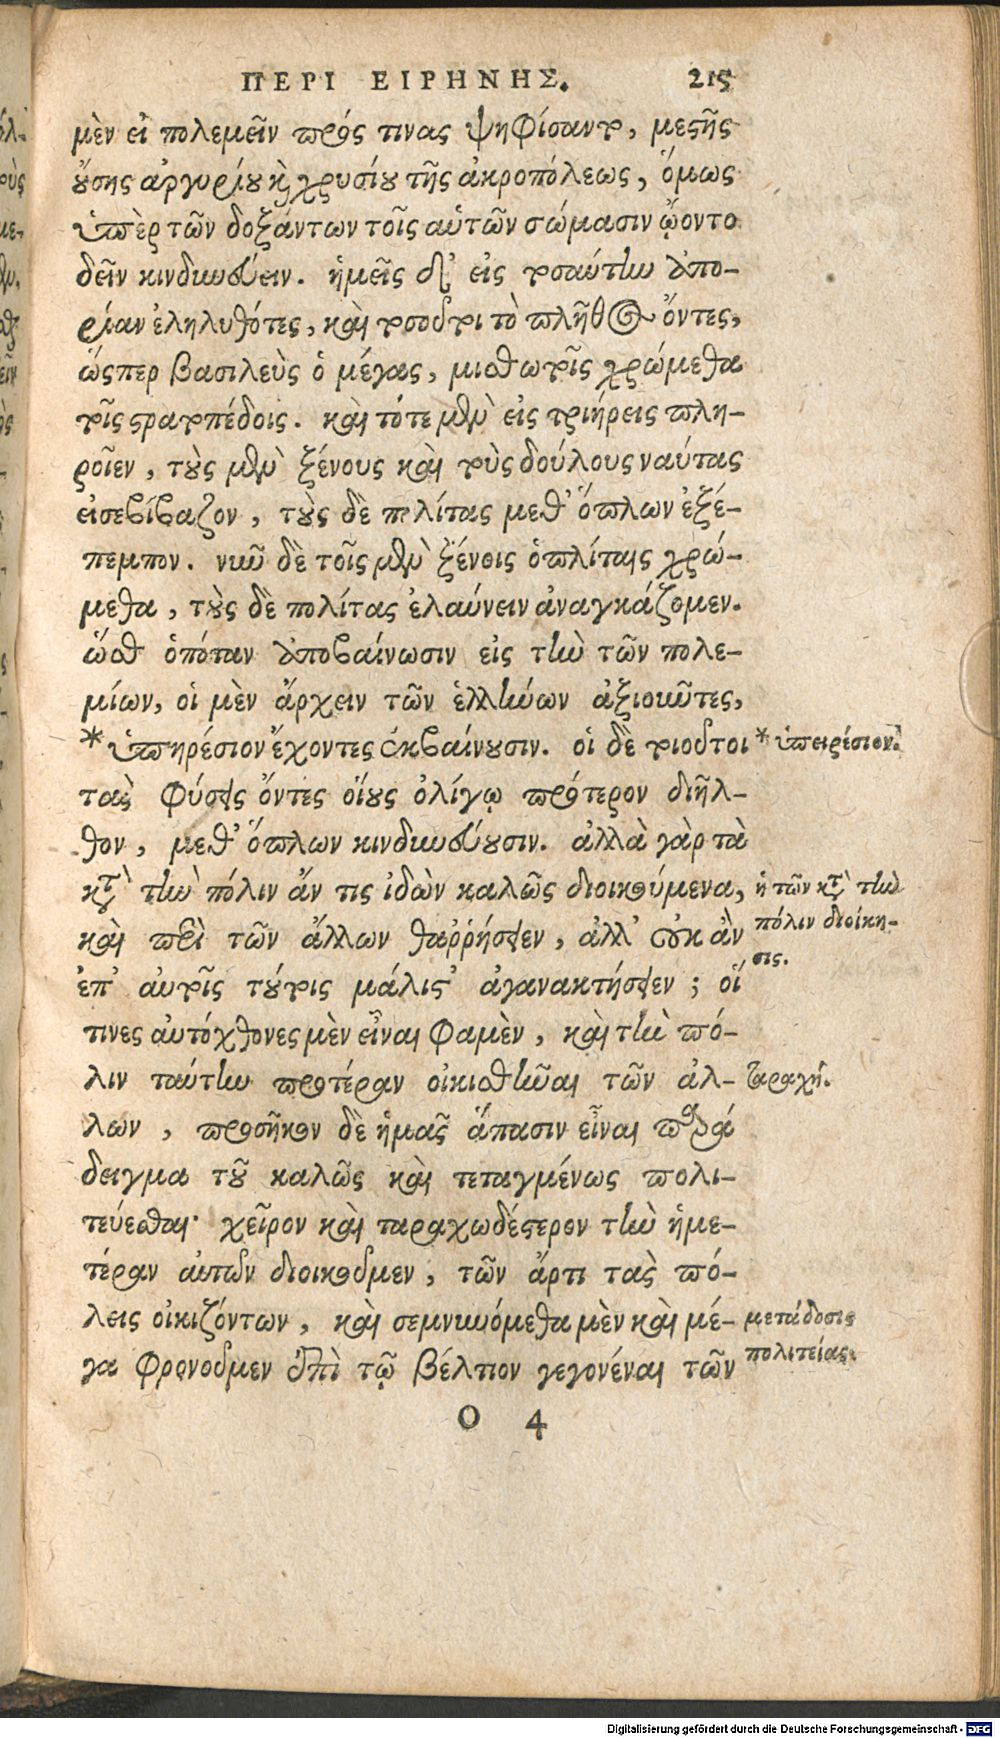 ΠΕΡΙ ΕΙΡΗΝΗΣ. 215
μὲν εἰ πολεμεῖν πρός τινας ψηφίσαιντο, μεστῆς
οὔσης ἀργυρίου καὶ χρυσίου τῆς ἀκροπόλεως, ὅμως
ὑπὲρ τῶν δοξάντων τοῖς αὑτῶν σώμασιν ᾤοντο
δεῖν κινδυνεύειν. ἡμεῖς δ' εἰς τοσαύτην ἀπο-
ρίαν ἐληλυθότες, καὶ τοσοῦτοι τὸ πλῆθος ὄντες,
ὥσπερ βασιλεὺς ὁ μέγας, μισθωτοῖς χρώμεθα
τοῖς στρατοπέδοις. καὶ τότε μὲν εἰς τριήρεις πλη-
ροῖεν, τοὺς μὲν ξένους καὶ τοὺς δούλους ναύτας
εἰσεβίβαζον, τοὺς δὲ πολίτας μεθ' ὅπλων ἐξέ-
πεμπον. νῦν δὲ τοῖς μὲν ξένοις ὁπλίταις χρώ-
μεθα, τοὺς δὲ πολίτας ἐλαύνειν ἀναγκάζομεν.
ὥσθ' ὁπόταν ἀποβαίνωσιν εἰς τὴν τῶν πολε-
μίων, οἱ μὲν ἄρχειν τῶν ἑλλήνων ἀξιοῦντες,
* ὑπηρέσιον ἔχοντες ἐκβαίνουσιν. οἱ δὲ τοιοῦτοι
* ὑπειρέσιον.
τὰς φύσεις ὄντες οἵους ὀλίγῳ πρότερον διῆλ-
θον, μεθ' ὅπλων κινδυνεύουσιν. ἀλλὰ γὰρ τὰ
κατὰ τὴν πόλιν ἄν τις ἰδὼν καλῶς διοικούμενα,
ἡ τῶν κατὰ τὴν
πόλιν διοίκη-
σις.
καὶ περὶ τῶν ἄλλων θαῤῥήσειεν, ἀλλ' οὐκ ἂν
ἐπ' αὐτοῖς τούτοις μάλιστ' ἀγανακτήσειεν; οἵ
τινες αὐτόχθονες μὲν εἶναι φαμὲν, καὶ τὴν πό-
λιν ταύτην προτέραν οἰκισθῆναι τῶν ἀλ-
ταραχή.
λων, προσῆκον δὲ ἡμᾶς ἅπασιν εἶναι παρά
δειγμα τοῦ καλῶς καὶ τεταγμένως πολι-
τεύεσθαι· χεῖρον καὶ ταραχωδέστερον τὴν ἡμε-
τέραν αὐτῶν διοικοῦμεν, τῶν ἄρτι τὰς πό-
λεις οἰκιζόντων, καὶ σεμνυνόμεθα μὲν καὶ μέ-
μετάδοσις
πολιτείας.
γα φρονοῦμεν ἐπὶ τῷ βέλτιον γεγονέναι τῶν
O 4
Digitalisierung gefördert durch die Deutsche Forschungsgemeinschaft - DFG